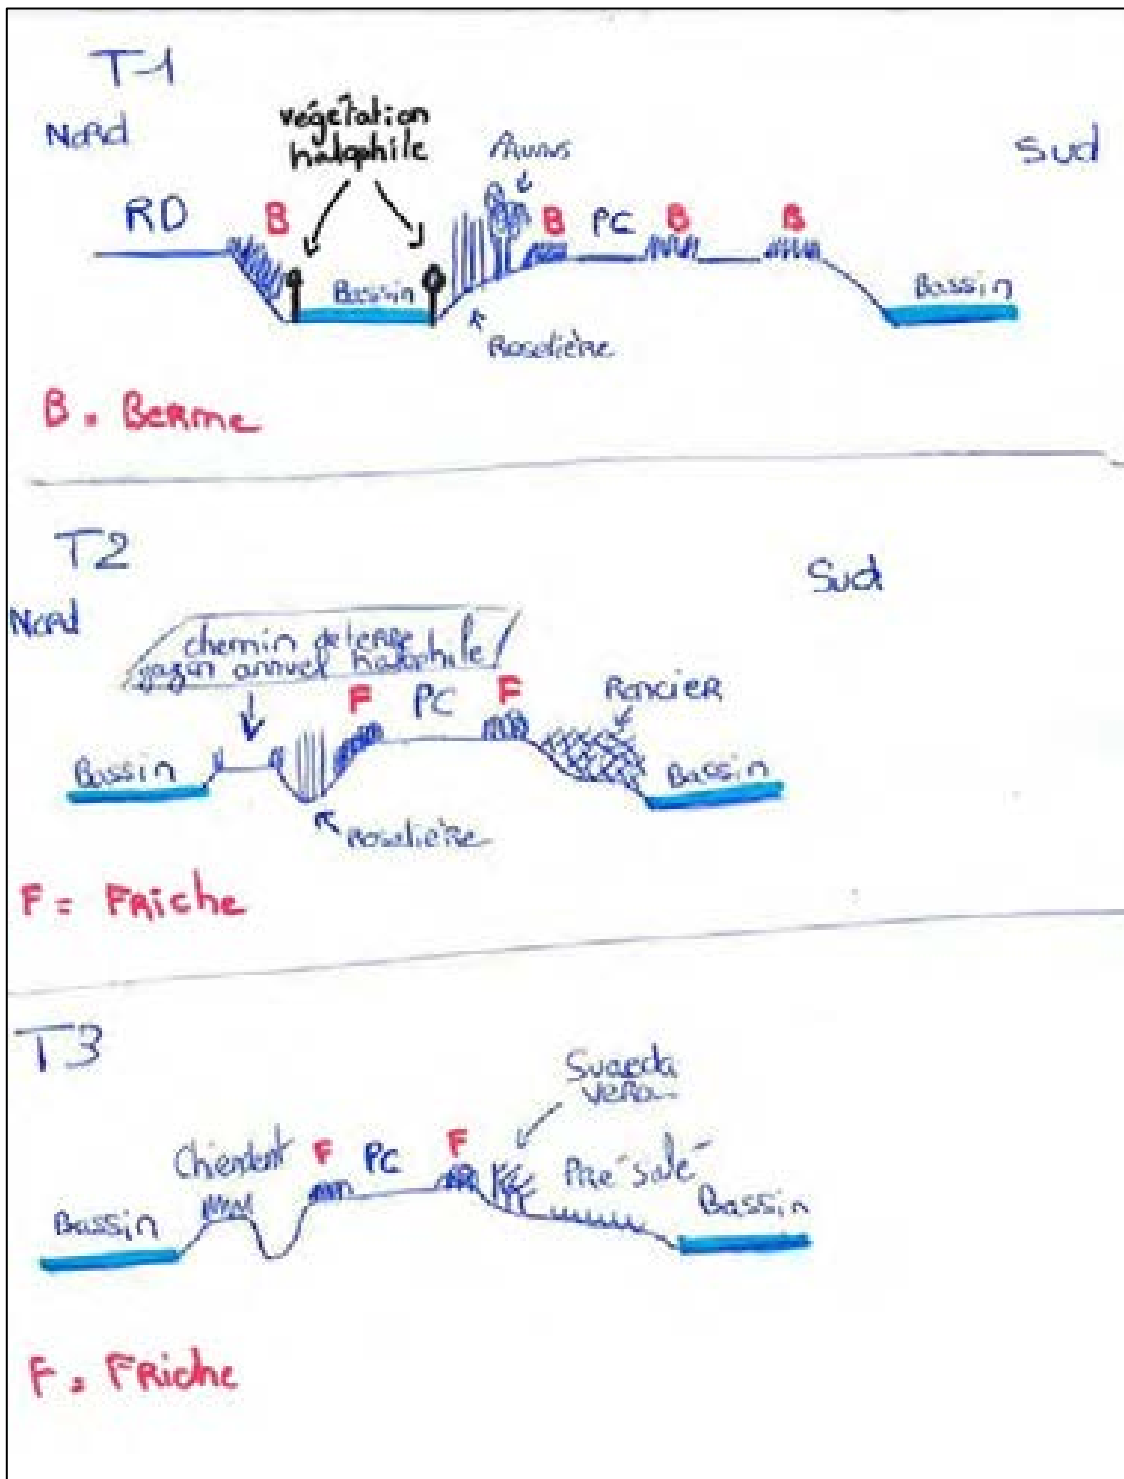 T1
Nord
végétation
halophile
Prunus
Sud
RD
B
B
PC
B
B
Bassin
Bassin
Roselière
B = Berme
T2
Nord
Sud
chemin de terre
gazon annuel halophile
F
PC
F
Roncier
Bassin
Bassin
Roselière
F = Friche
T3
Suaeda
vera
Chiendent
F
PC
F
Pré salé
Bassin
Bassin
F = Friche